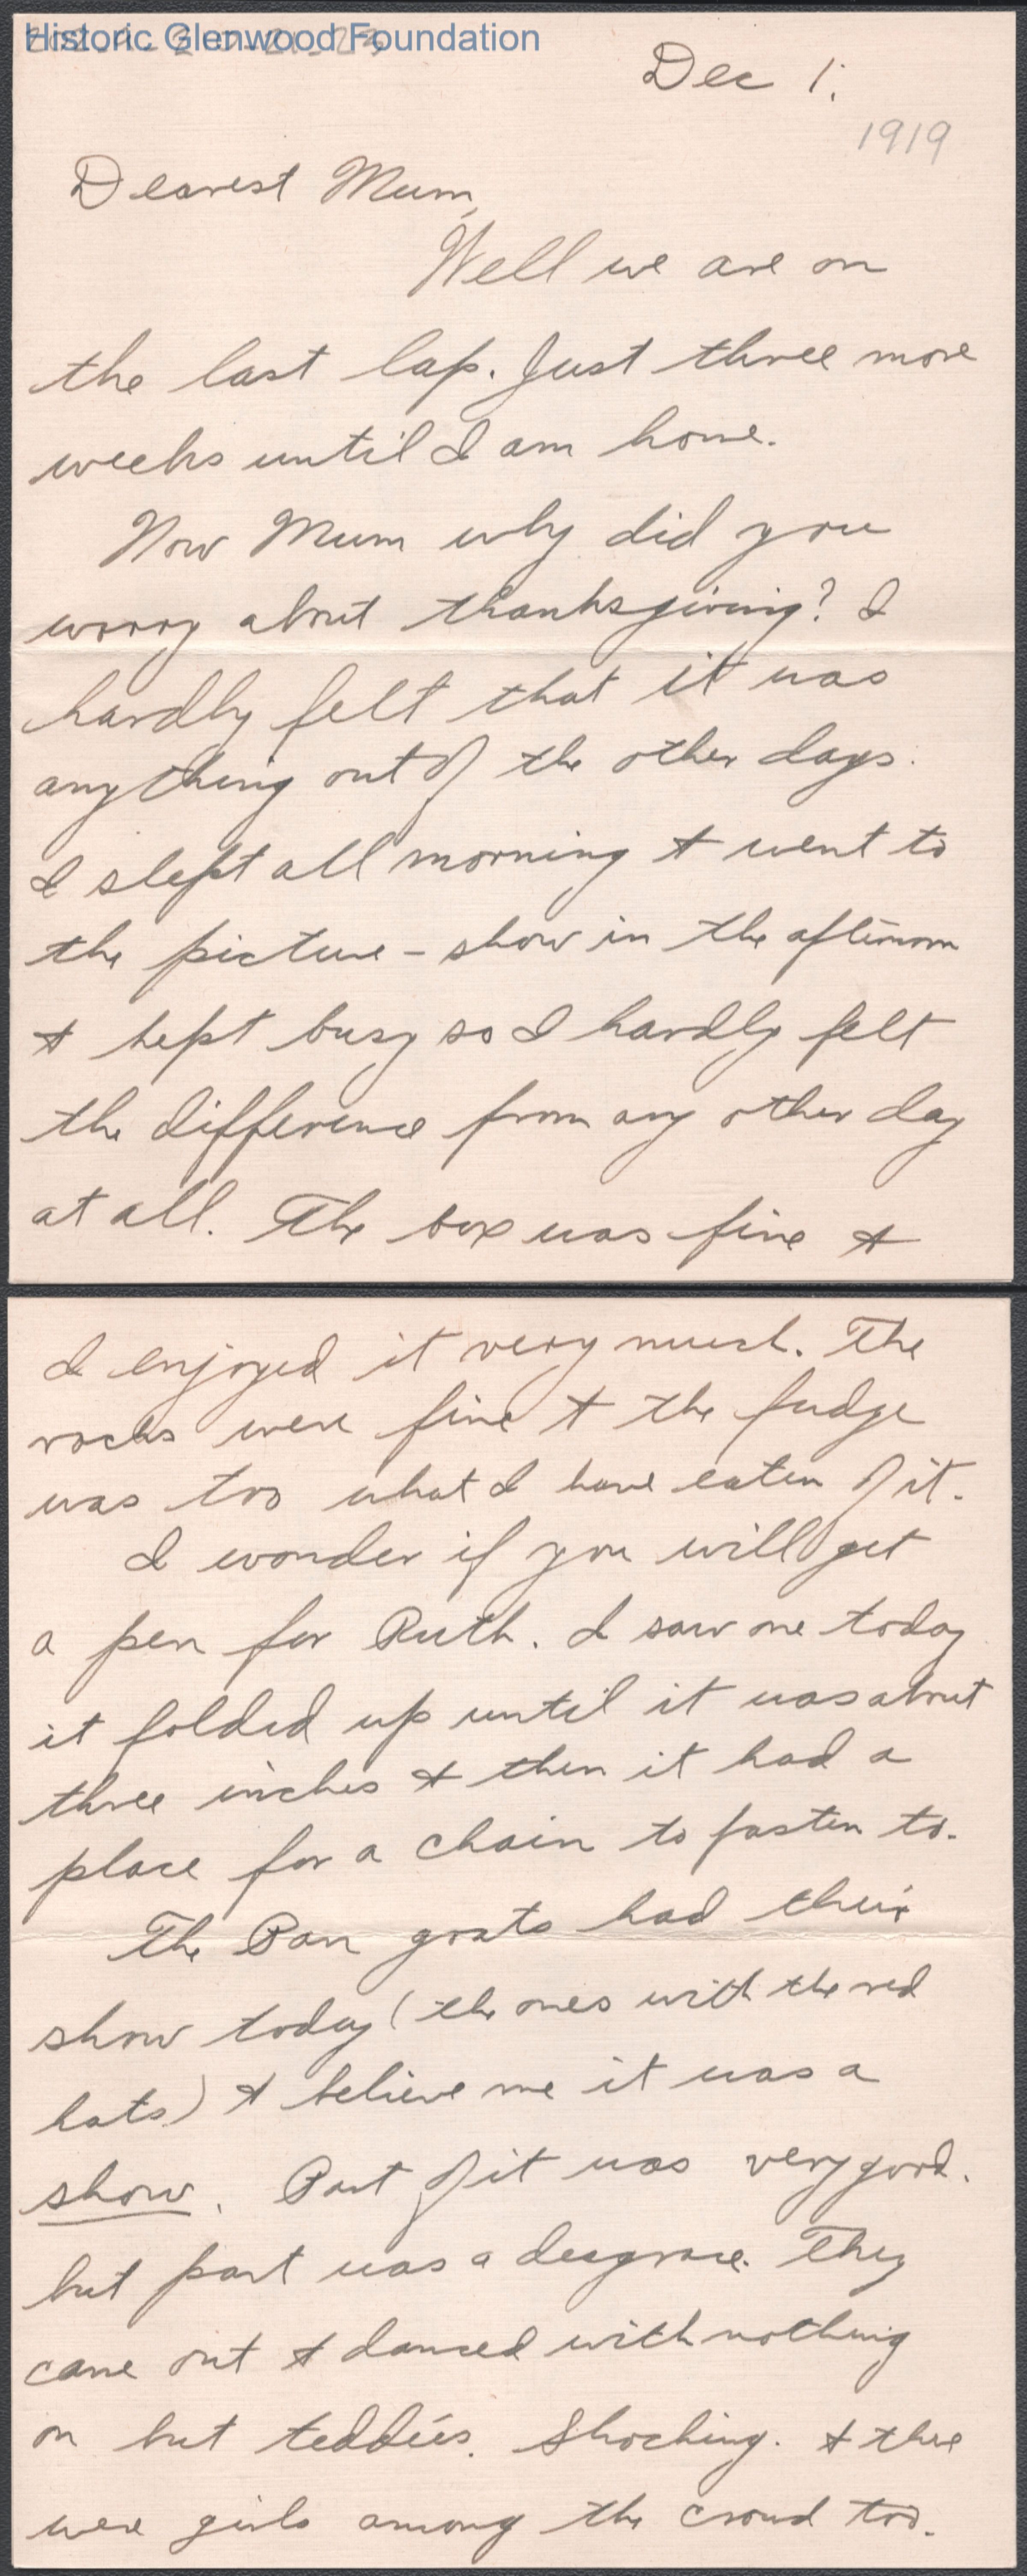 Historic Glenwood Foundation
Dec 1.
1919
Dearest Mum,
Well we are on
the last lap. Just three more
weeks until I am home.
Now Mum why did you
worry about thanksgiving? I
hardly felt that it was
anything out of the other days.
I slept all morning & went to
the picture - show in the afternoon
& kept busy so I hardly felt
the difference from any other day
at all. The box was fine &
I enjoyed it very much. The
rocks were fine & the fudge
was too what I have eaten of it.
I wonder if you will get
a pen for Ruth. I saw one today
it folded up until it was about
three inches & then it had a
place for a chain to fasten to.
The Pan goats had their
show today (the ones with the red
hats) & believe me it was a
show. Part of it was very good.
but part was a disgrace. They
came out & danced with nothing
on but teddies. Shocking. & there
were girls among the crowd too.